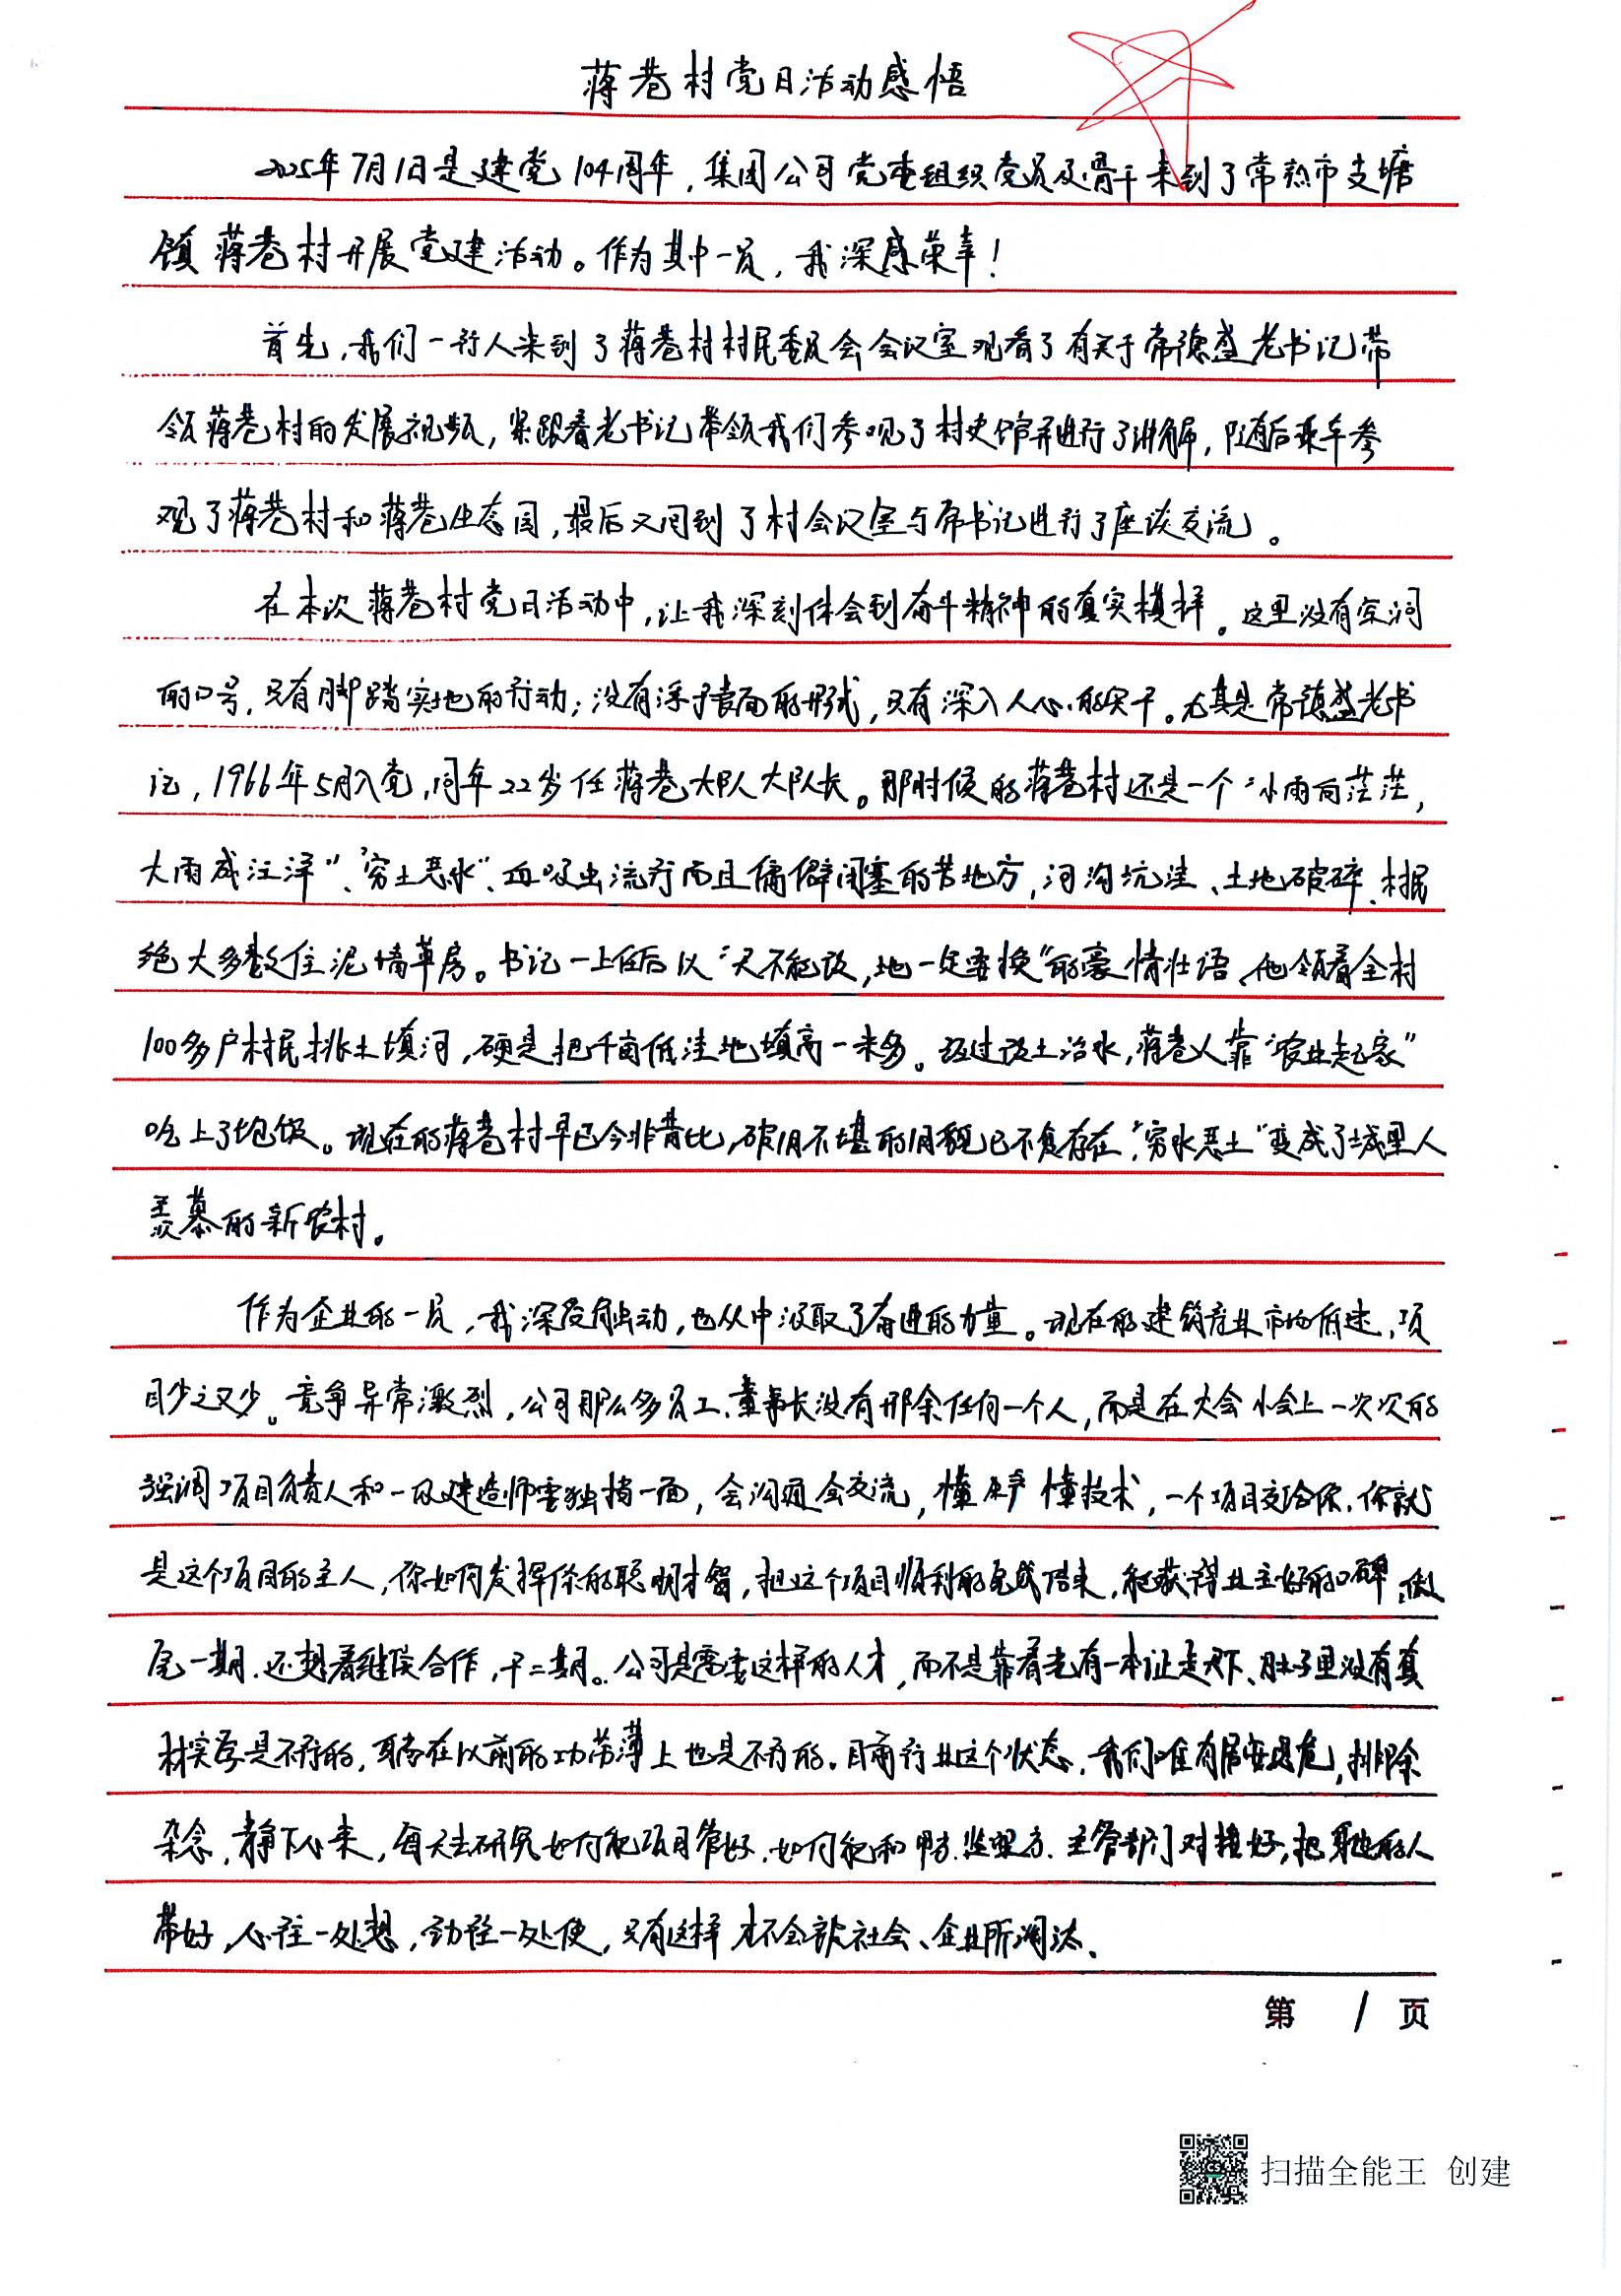 蒋巷村党日活动感悟
2025年7月1日是建党104周年，集团公司党委组织党员及骨干来到了常熟市支塘
镇蒋巷村开展党建活动。作为其中一员，我深感荣幸！
首先，我们一行人来到了蒋巷村村民委员会会议室观看了有关于常德盛老书记带
领蒋巷村的发展视频，紧跟着老书记带领我们参观了村史馆并进行了讲解，随后乘车参
观了蒋巷村和蒋巷生态园，最后又回到了村会议室与常书记进行了座谈交流。
在本次蒋巷村党日活动中，让我深刻体会到奋斗精神的真实模样。这里没有空洞
的口号，只有脚踏实地的行动；没有浮于表面的形式，只有深入人心的实干。尤其是常德盛老书
记，1966年5月入党，同年22岁任蒋巷大队大队长。那时候的蒋巷村还是一个“小雨白茫茫，
大雨成汪洋”、“穷土恶水”、血吸虫流行而且偏僻闭塞的苦地方，河沟坑洼、土地破碎、村民
绝大多数住泥墙草房。书记一上任后以“天不能改，地一定要换”的豪情壮语、他领着全村
100多户村民挑土填河，硬是把千亩低洼地填高一米多。经过改土治水，蒋巷人靠“农业起家”
吃上了饱饭。现在的蒋巷村早已今非昔比，破旧不堪的旧貌已不复存在，“穷水恶土”变成了城里人
羡慕的新农村。
作为企业的一员，我深受触动，也从中汲取了奋进的力量。现在的建筑产业市场低迷，项
目少之又少。竞争异常激烈，公司那么多员工、董事长没有开除任何一个人，而是在大会小会上一次次的
强调项目负责人和一级建造师要独挡一面，会沟通会交流，懂生产懂技术，一个项目交给你，你就
是这个项目的主人，你如何发挥你的聪明才智，把这个项目顺利的完成下来，能获得业主好的口碑，做
完一期，还想着继续合作，干二期。公司是需要这样的人才，而不是靠着光有一本证走天下、肚子里没有真
材实学是不行的，更躺在以前的功劳薄上也是不行的。目前行业这个状态，我们唯有居安思危，排除
杂念，静下心来，每天去研究如何把项目管好，如何能和甲方、监理方、主管部门对接好，把身边的人
带好，心往一处想，劲往一处使，只有这样才不会被社会、企业所淘汰、
第 1 页
扫描全能王 创建